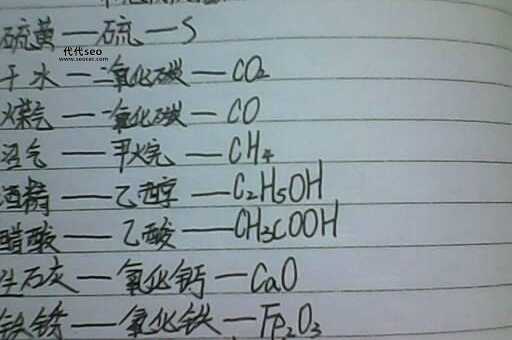 硫黄—硫—S
代代seo
www.seocec.com
干冰—二氧化碳—CO2
煤气—一氧化碳—CO
沼气—甲烷—CH4
酒精—乙醇—C2H5OH
醋酸—乙酸—CH3COOH
生石灰—氧化钙—CaO
铁锈—氧化铁—Fe2O3